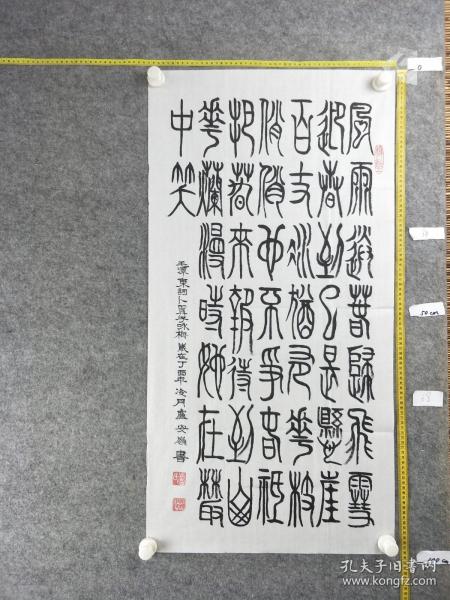 風雨送春歸飛雪
迎春到已是懸崖
百丈冰猶有華枝
俏俏也不爭春祇
把春來報待到山
華爛漫時她在叢
中笑
毛澤東詞卜算子詠梅 歲在丁酉年冷月盧安書
0
50cm
孔夫子旧书网
www.kongfz.com